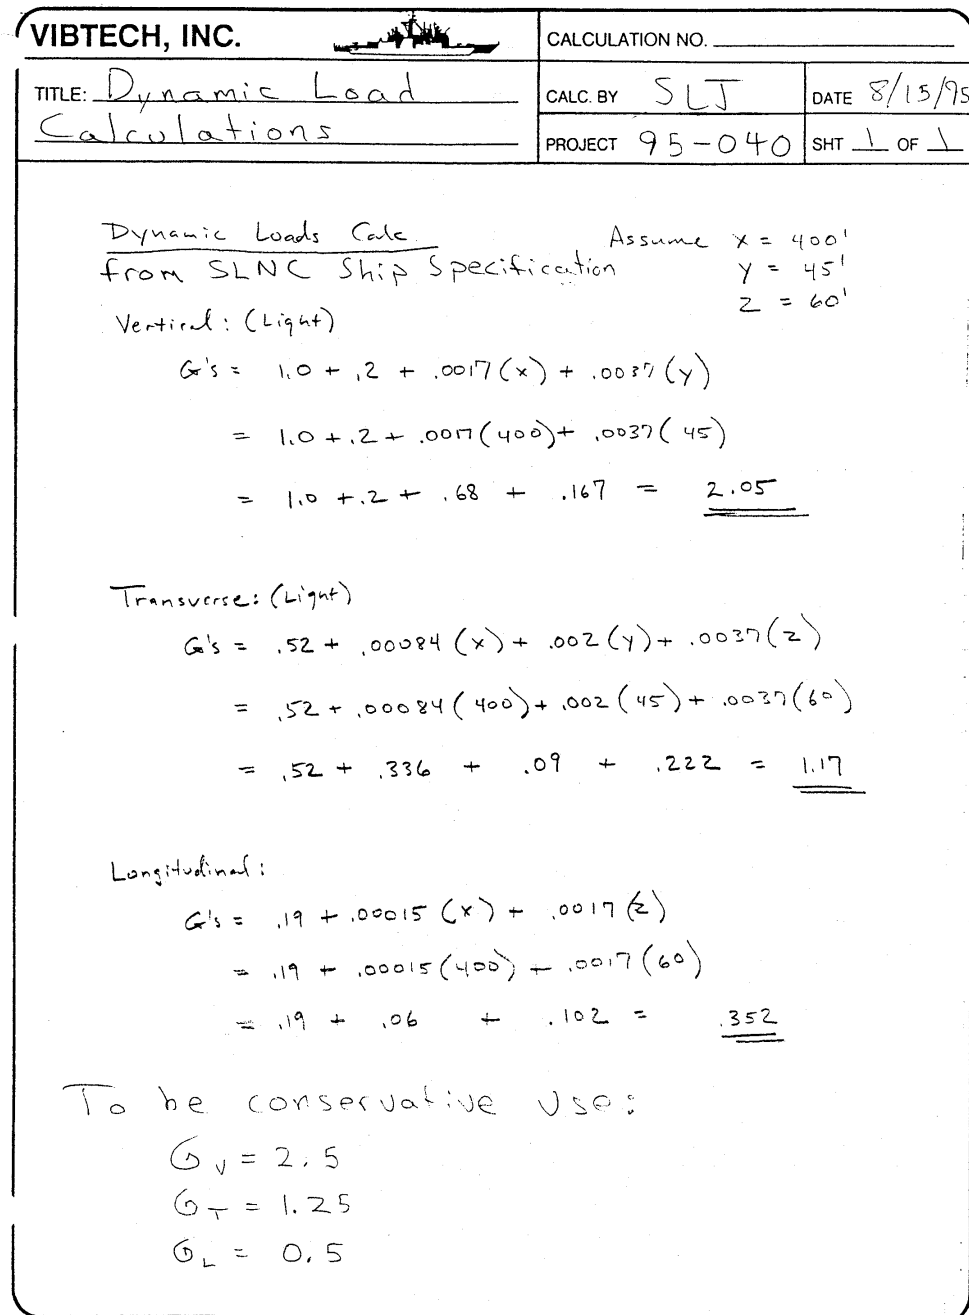 VIBTECH, INC.
CALCULATION NO.
TITLE: Dynamic Load
Calculations
CALC. BY SLJ
DATE 8/15/95
PROJECT 95-040
SHT 1 OF 1
Dynamic Loads Calc.
from SLNC Ship Specification
Assume x = 400'
y = 45'
z = 60'
Vertical: (Light)
G's = 1.0 + .2 + .0017(x) + .0037(y)
= 1.0 + .2 + .0017(400) + .0037(45)
= 1.0 + .2 + .68 + .167 = 2.05
Transverse: (Light)
G's = .52 + .00084(x) + .002(y) + .0037(z)
= .52 + .00084(400) + .002(45) + .0037(60)
= .52 + .336 + .09 + .222 = 1.17
Longitudinal:
G's = .19 + .00015(x) + .0017(z)
= .19 + .00015(400) + .0017(60)
= .19 + .06 + .102 = .352
To be conservative use:
G_V = 2.5
G_T = 1.25
G_L = 0.5